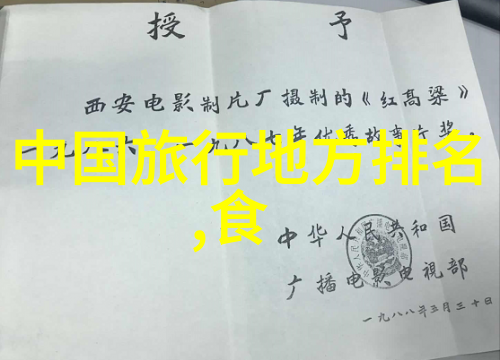 授 予
西安电影制片厂摄制的《红高粱》
一九八七年优秀故事片奖。
中国旅行地方排名
,食
中华人民共和国
广播电影电視部
一九八八年三月三十日